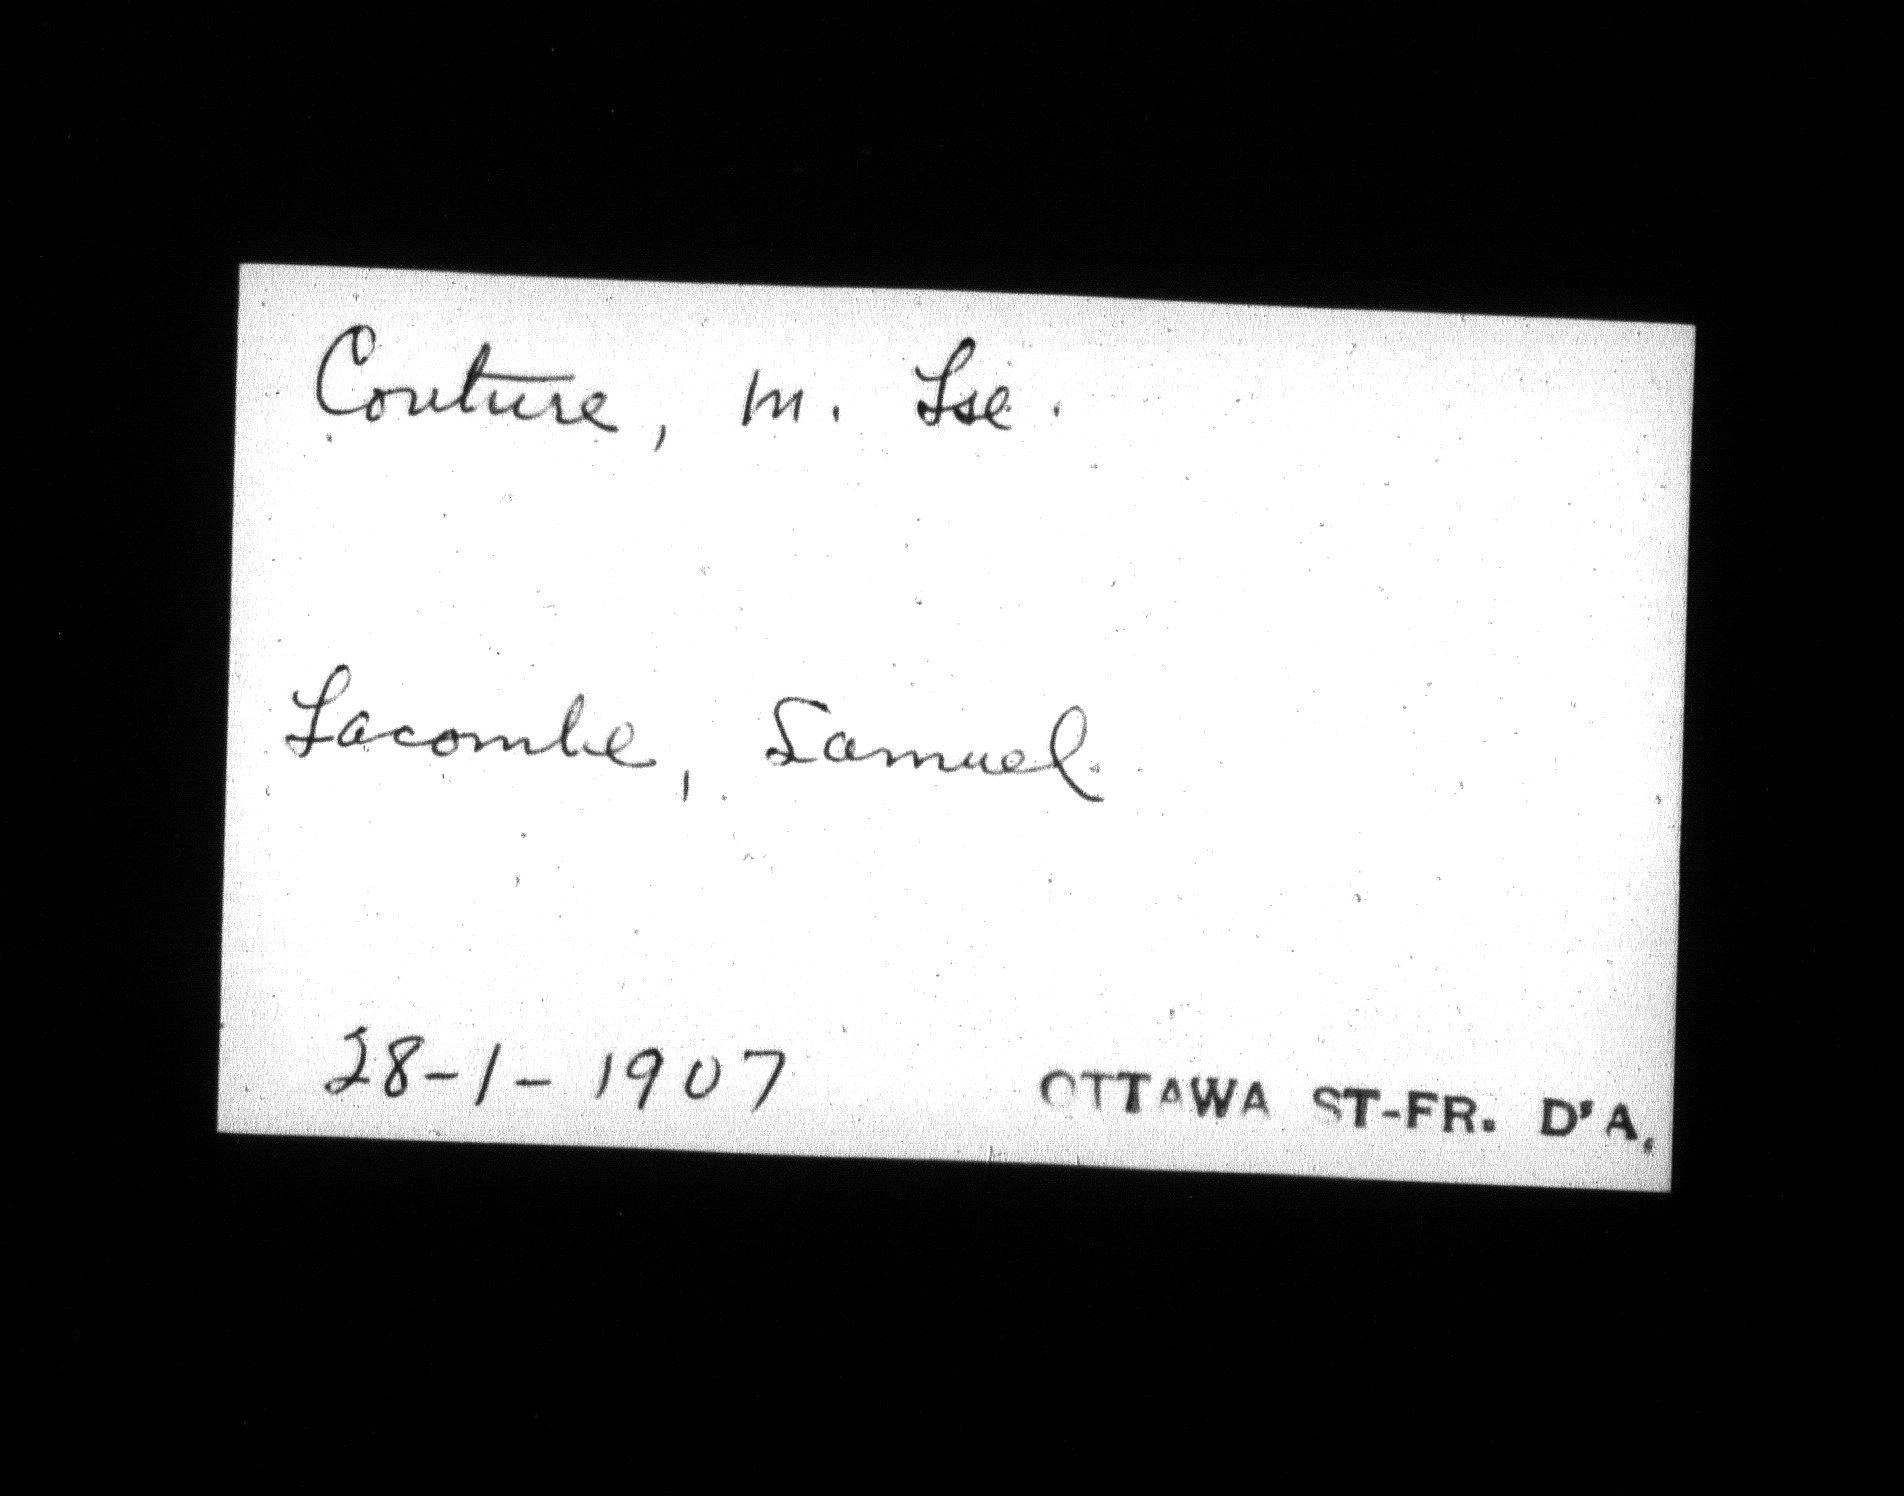 Couture, M. Lse.
Lacombe, Samuel
28-1-1907 OTTAWA ST-FR. D'A.